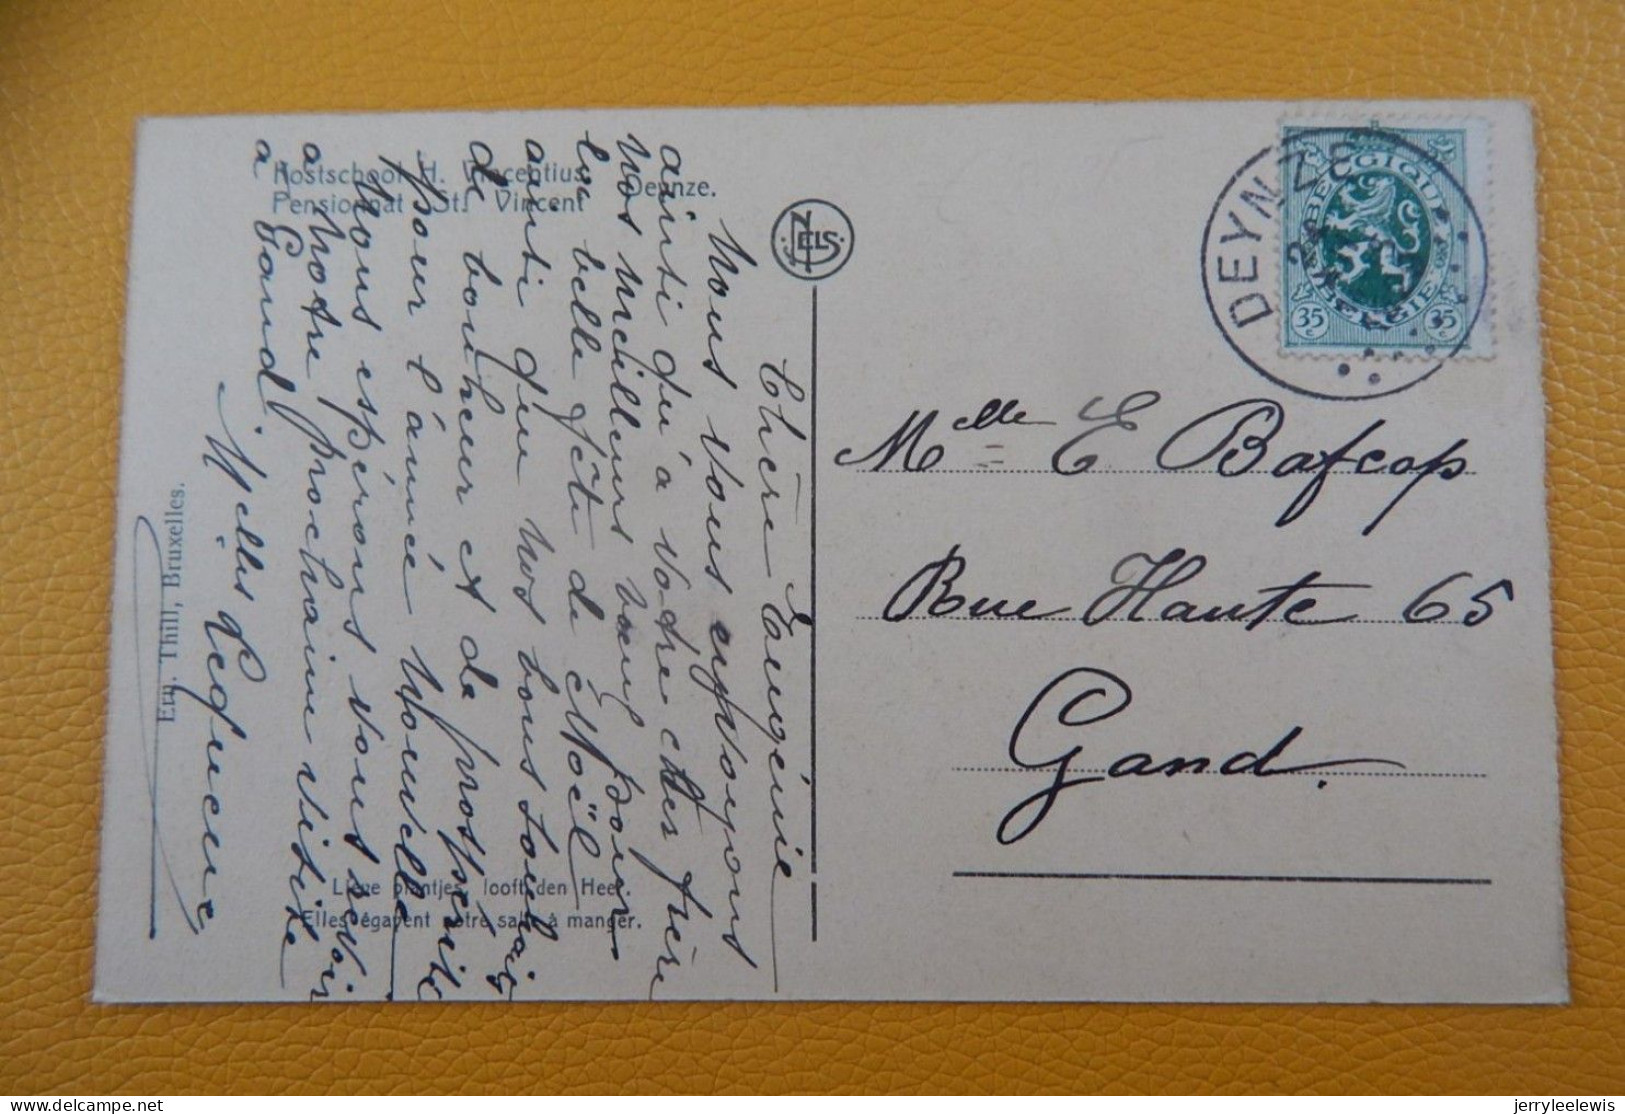 Kostschool H. Vincentius
Pensionnat St. Vincent
Deynze.
NELS
Chère Eugénie
Nous vous envoyons
ainsi qu'à votre cher frère
nos meilleurs vœux pour
la belle fête de Noël
ainsi que nos bons souhaits
de bonheur et de prospérité
pour l'année Nouvelle
Nous espérons vous revoir
à Notre prochaine visite
à Gand.
Melles
Ern. Thill, Bruxelles.
Lieve plantjes, looft den Heer.
Elles égayent notre salle à manger.
BELGIQUE
BELGIË
35 c
35 c
DEYNZE
Melle E Bafcop
Rue Haute 65
Gand.
jerryleelewis